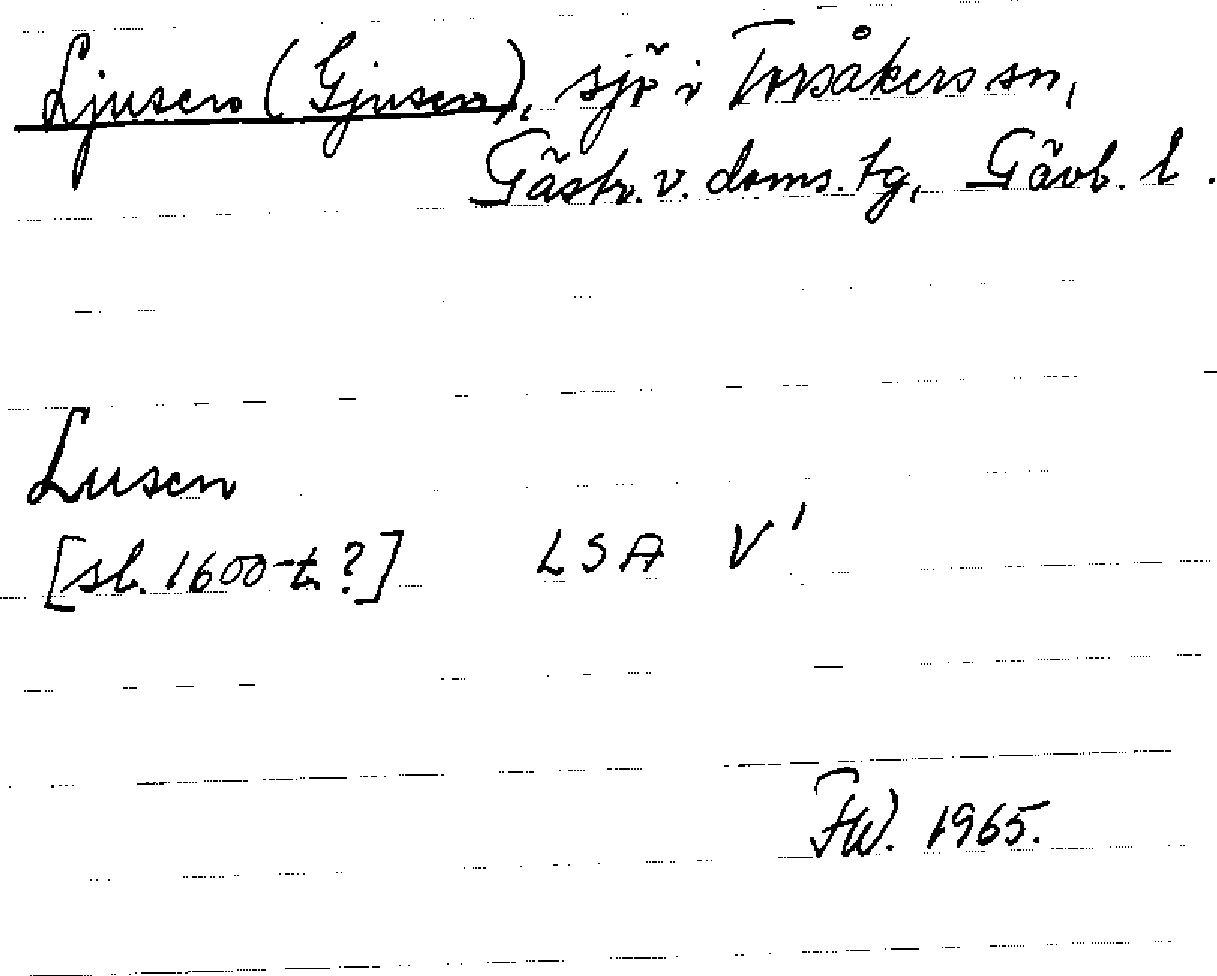 Ljusen (Gjusen), sjö i Torsåkers sn,
Gästr. v. doms. tg, Gävb. l.
Lusen
[sl. 1600-t.?] LSA V'
FW. 1965.